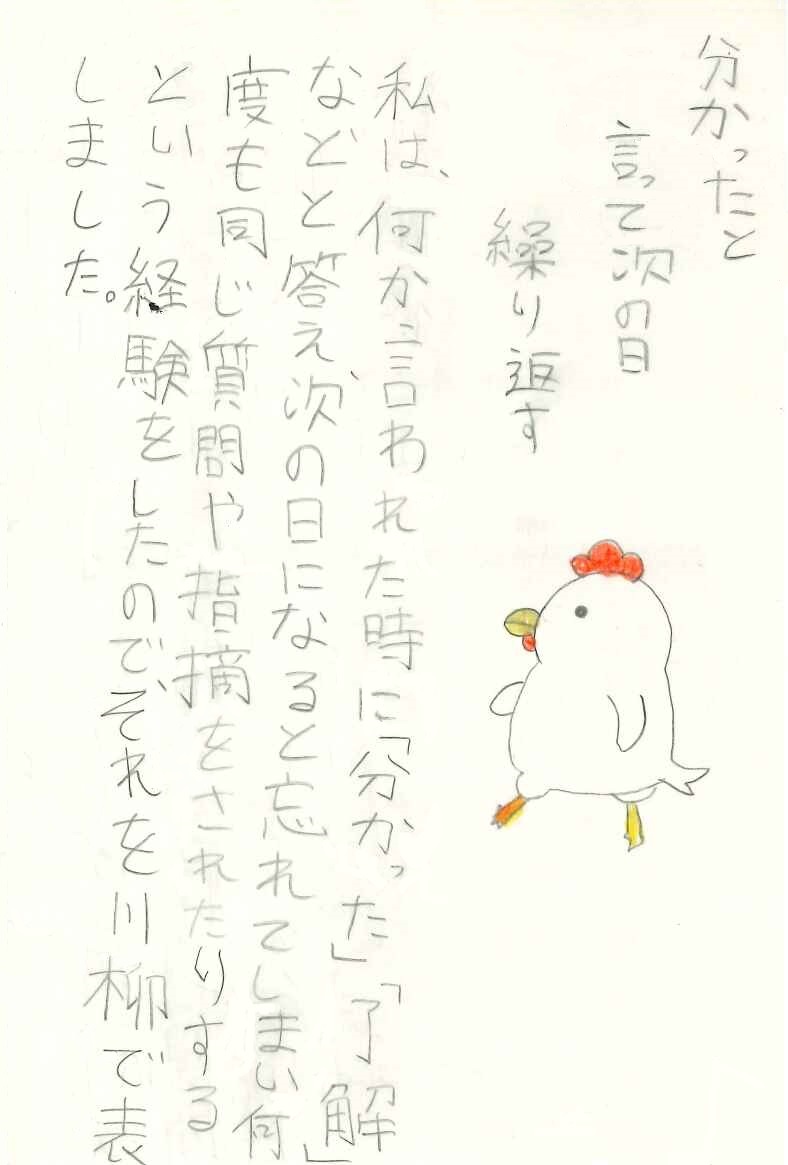 分かったと
言って次の日
繰り返す
私は、何か言われた時に「分かった」「了解」
などと答え、次の日になると忘れてしまい何
度も同じ質問や指摘をされたりする
という経験をしたので、それを川柳で表
しました。